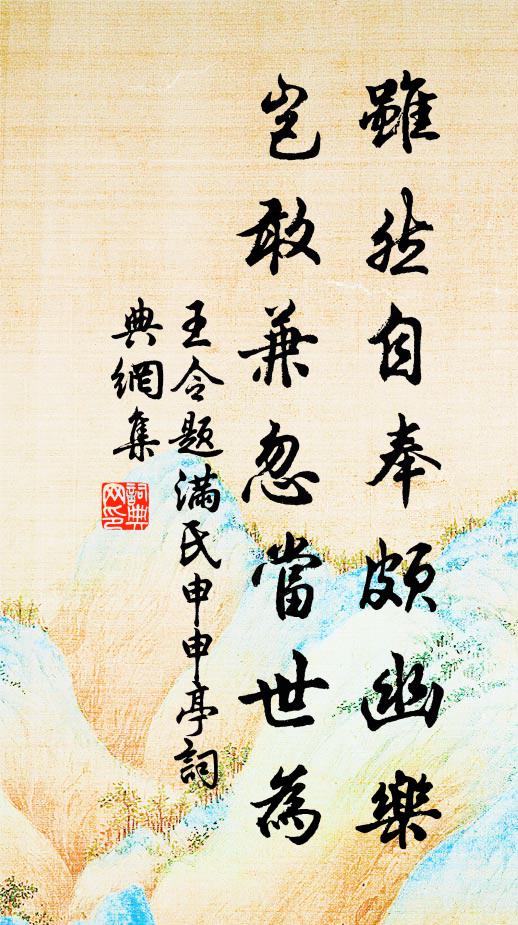 雖然自奉頗幽樂
豈敢兼忽當世為
王令題滿氏申申亭詞
典網集
詞典
网印